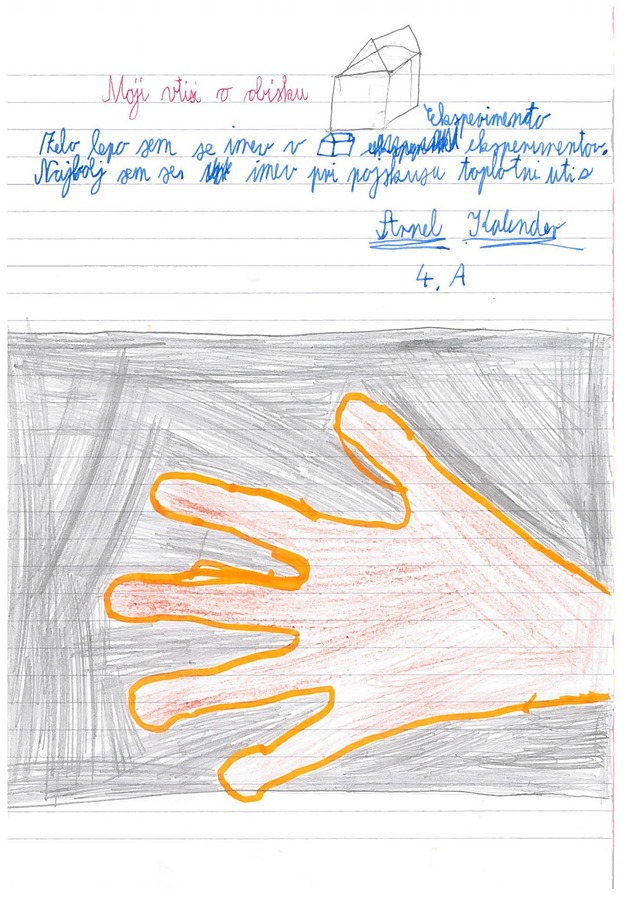 Moji vtisi o obisku
Eksperimento
Zelo lepo sem se imev v eksperimentov.
Najbolj sem ses imev pri pojskusu toplotni utis
Arnel Kalender
4. A